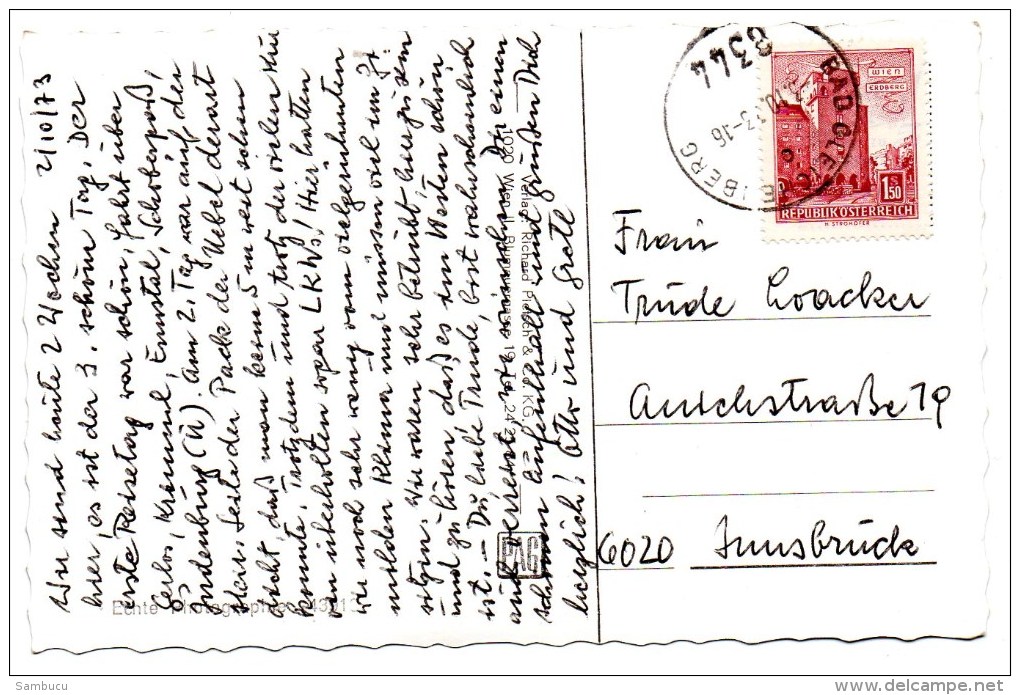 2/10/73
Wir sind heute 2 Wochen
hier, es ist der 3. schöne Tag. Der
erste Reisetag war schön, Fahrt über
Gerlos, Krimml, Ennstal, Schoberpaß,
Judenburg (Ü). Am 2. Tag war auf der
Seite der Pack der Nebel derart
dicht, daß man kaum 5 m weit sehen
konnte. Trotzdem und trotz der vielen
wir überholten sogar LKWs! Hier hatten
wir noch sehr wenig vom vielgerühmten
milden Klima und müssen viel im Zi.
sitzen. Wir waren sehr betrübt, hierzusein
und zu hören, daß es im Westen schön
ist. – Du liebe Trude, bist wahrscheinlich
auch verreist, wir wünschen Dir einen
schönen Aufenthalt und grüßen Dich
herzlich! Otto und Gretl
Echte Photographie
Verlag: Richard Pietsch & Co. KG.
1020 Wien II, Blumauergasse 19, Tel. 24
PAG
8344
BAD GLEICHENBERG
WIEN
ERDBERG
S
1.50
REPUBLIK ÖSTERREICH
H. STROHOFER
Frau
Trude Loacker
Anichstraße 19
6020 Innsbruck
Sambucu
delcampe.net